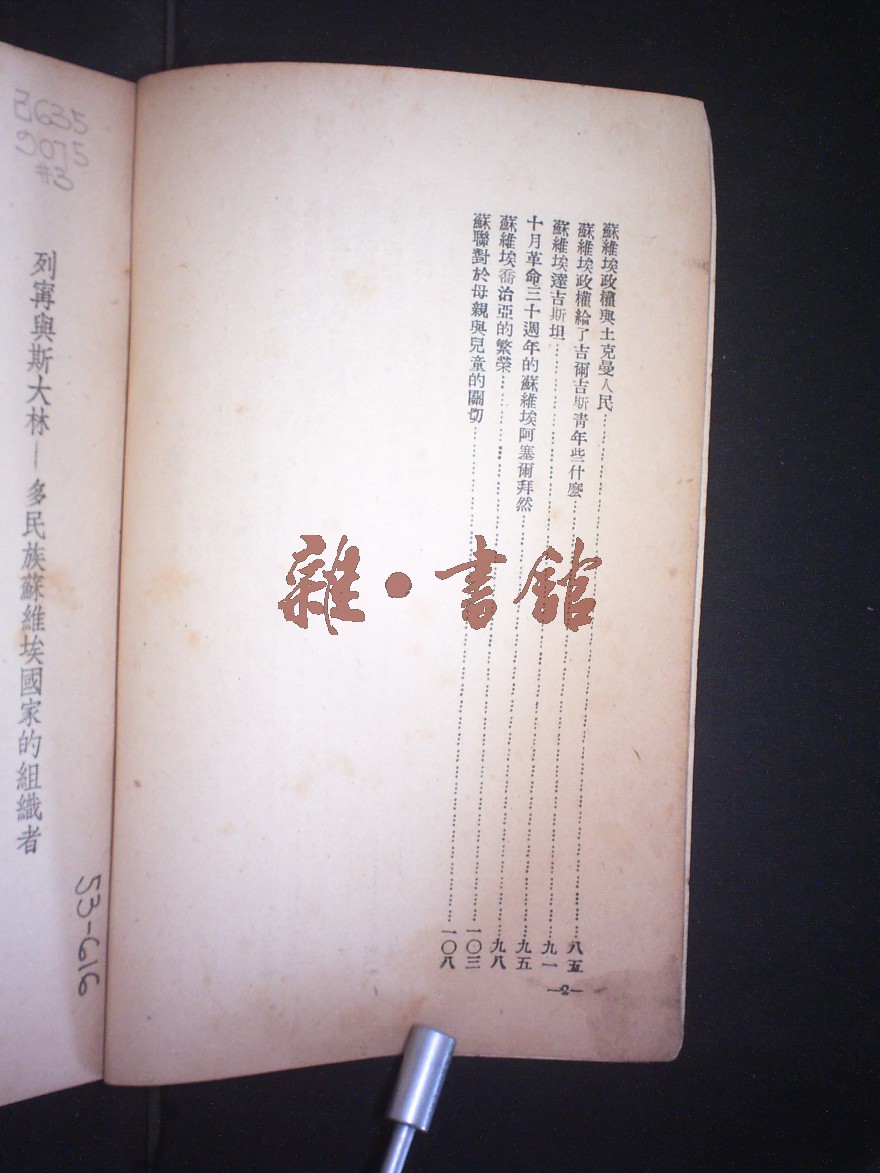 蘇維埃政權與土克曼人民……八五
蘇維埃政權給了吉爾吉斯青年些什麼……九一
蘇維埃達吉斯坦……九五
十月革命三十週年的蘇維埃阿塞爾拜然……九八
蘇維埃喬治亞的繁榮……一〇三
蘇聯對於母親與兒童的關切……一〇八
—2—
列寧與斯大林—多民族蘇維埃國家的組織者
B635
9075
#3
53-616
雜·書館